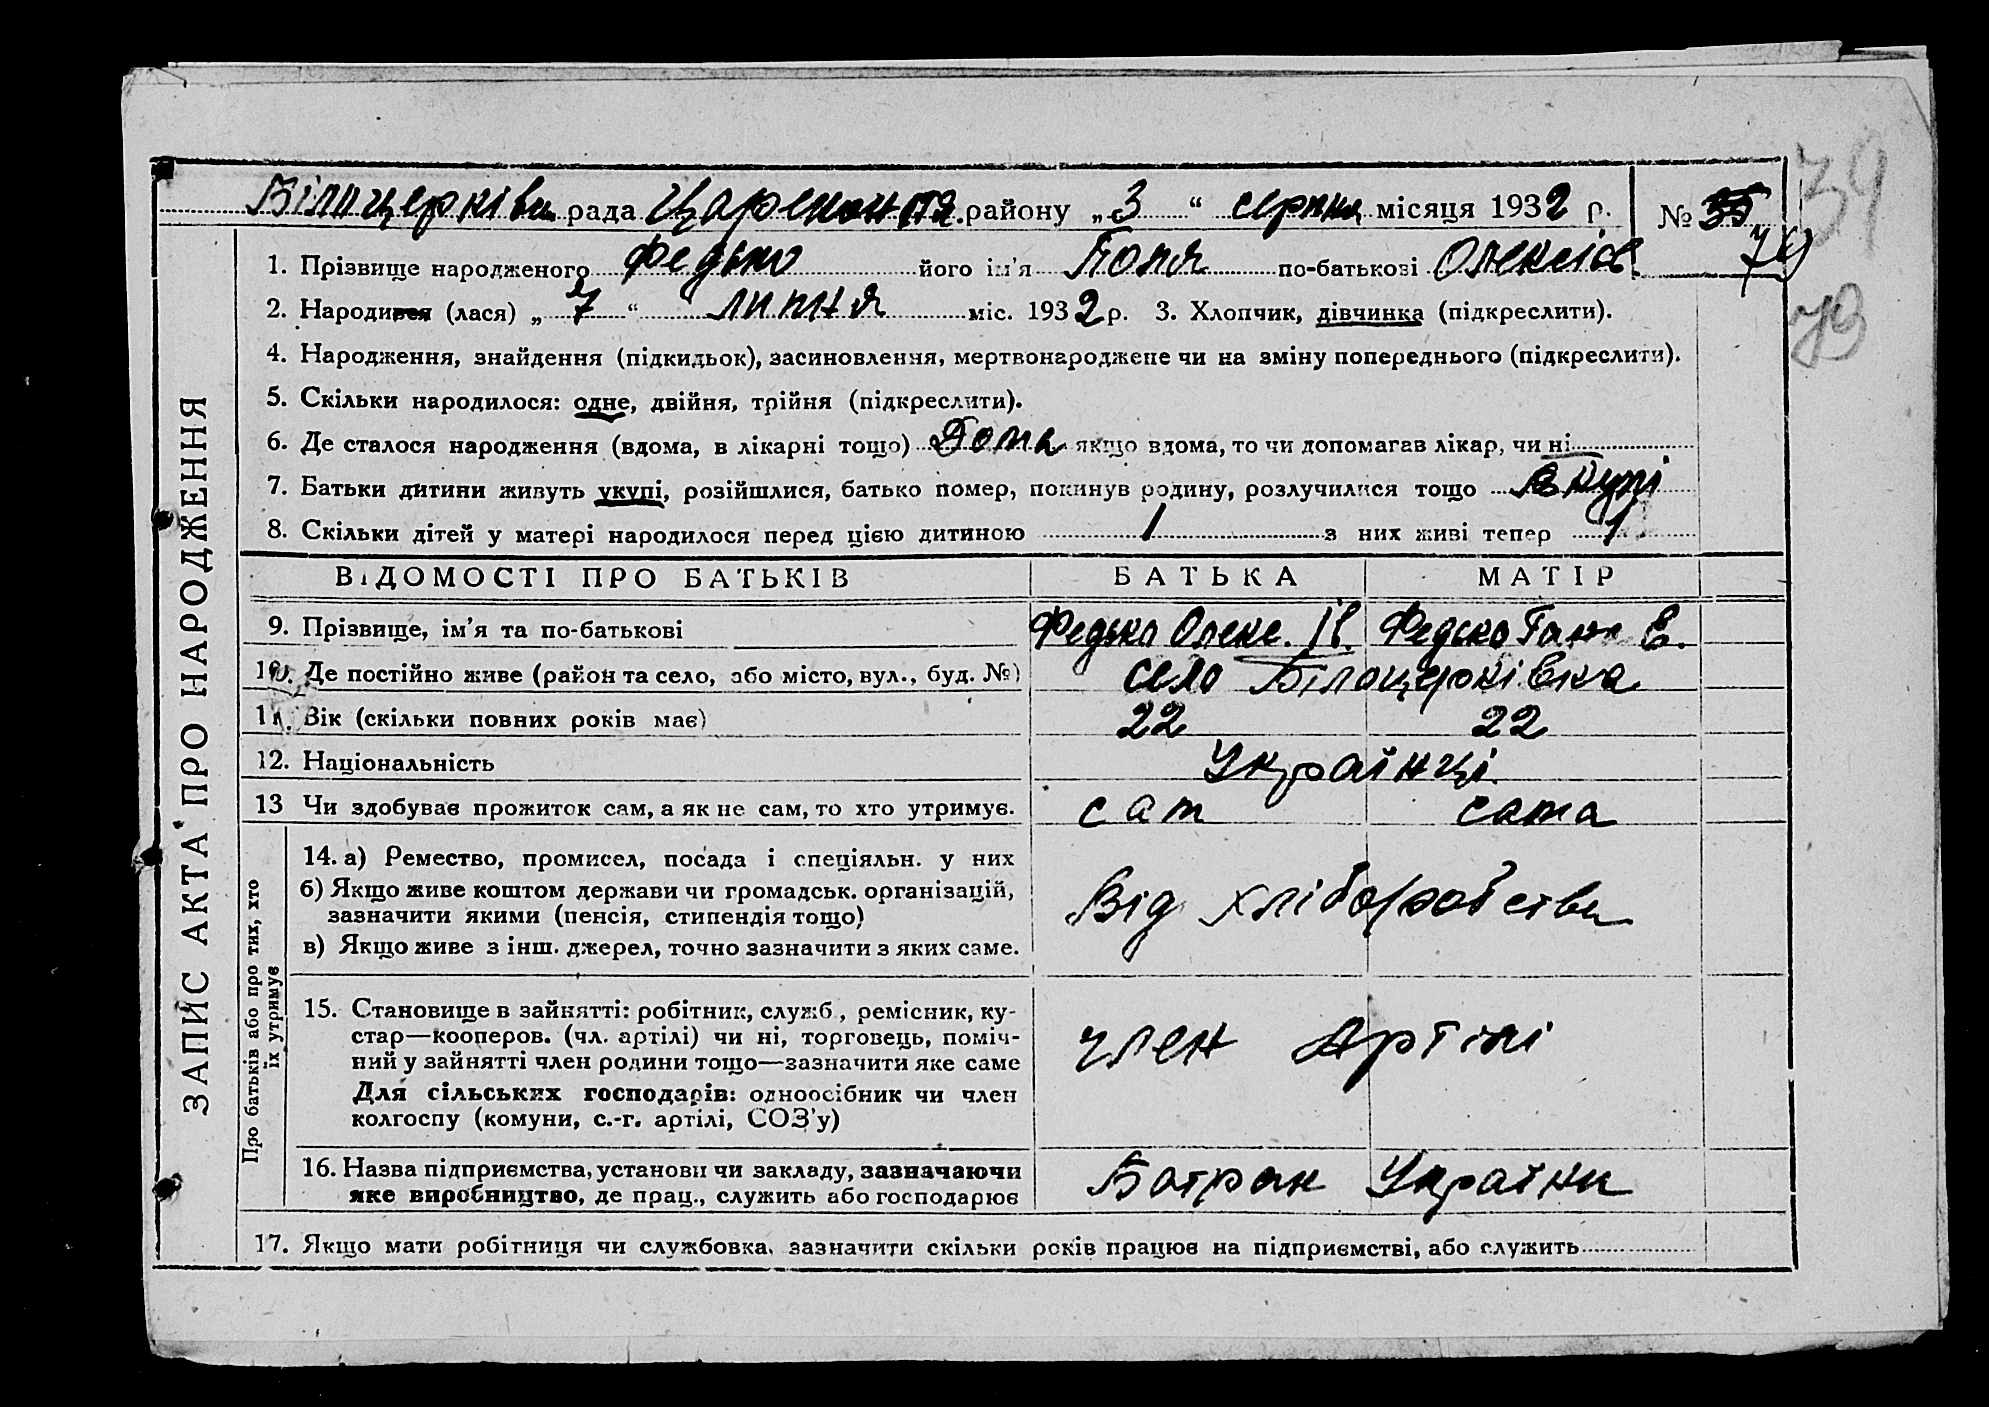 39
Білицерківк. рада Царекон ття. району „ 3 “ серпня місяця 1932 р. № 35
79
1. Прізвище народженого Федько його ім'я Поля по-батькові Олексіїв
2. Народився (лася) „ 7 “ липня міс. 1932 р. 3. Хлопчик, дівчинка (підкреслити).
79
4. Народження, знайдення (підкидьок), засиновлення, мертвонароджене чи на зміну попереднього (підкреслити).
5. Скільки народилося: одне, двійня, трійня (підкреслити).
6. Де сталося народження (вдома, в лікарні тощо) Дома якщо вдома, то чи допомагав лікар, чи ні
7. Батьки дитини живуть укупі, розійшлися, батько помер, покинув родину, розлучилися тощо вкупі
8. Скільки дітей у матері народилося перед цією дитиною 1 з них живі тепер 1
ЗАПИС АКТА ПРО НАРОДЖЕННЯ
ВІДОМОСТІ ПРО БАТЬКІВ БАТЬКА МАТІР
9. Прізвище, ім'я та по-батькові Федько Олекс. Ів. Федько Ганна Е.
10. Де постійно живе (район та село, або місто, вул., буд. №) село Білоцерківка
11. Вік (скільки повних років має) 22 22
12. Національність Українці
13 Чи здобуває прожиток сам, а як не сам, то хто утримує. сам сама
Про батьків або про тих, хто їх утримує
14. а) Ремество, промисел, посада і спеціяльн. у них
б) Якщо живе коштом держави чи громадськ. організацій,
зазначити якими (пенсія, стипендія тощо)
в) Якщо живе з інш. джерел, точно зазначити з яких саме.
Від хліборобства
15. Становище в зайнятті: робітник, служб., ремісник, ку-
стар—кооперов. (чл. артілі) чи ні, торговець, поміч-
ний у зайнятті член родини тощо—зазначити яке саме
Для сільських господарів: одноосібник чи член
колгоспу (комуни, с.-г. артілі, СОЗ'у)
член Артілі
16. Назва підприємства, установи чи закладу, зазначаючи
яке виробництво, де прац., служить або господарює
Батрак України
17. Якщо мати робітниця чи службовка, зазначити скільки років працює на підприємстві, або служить